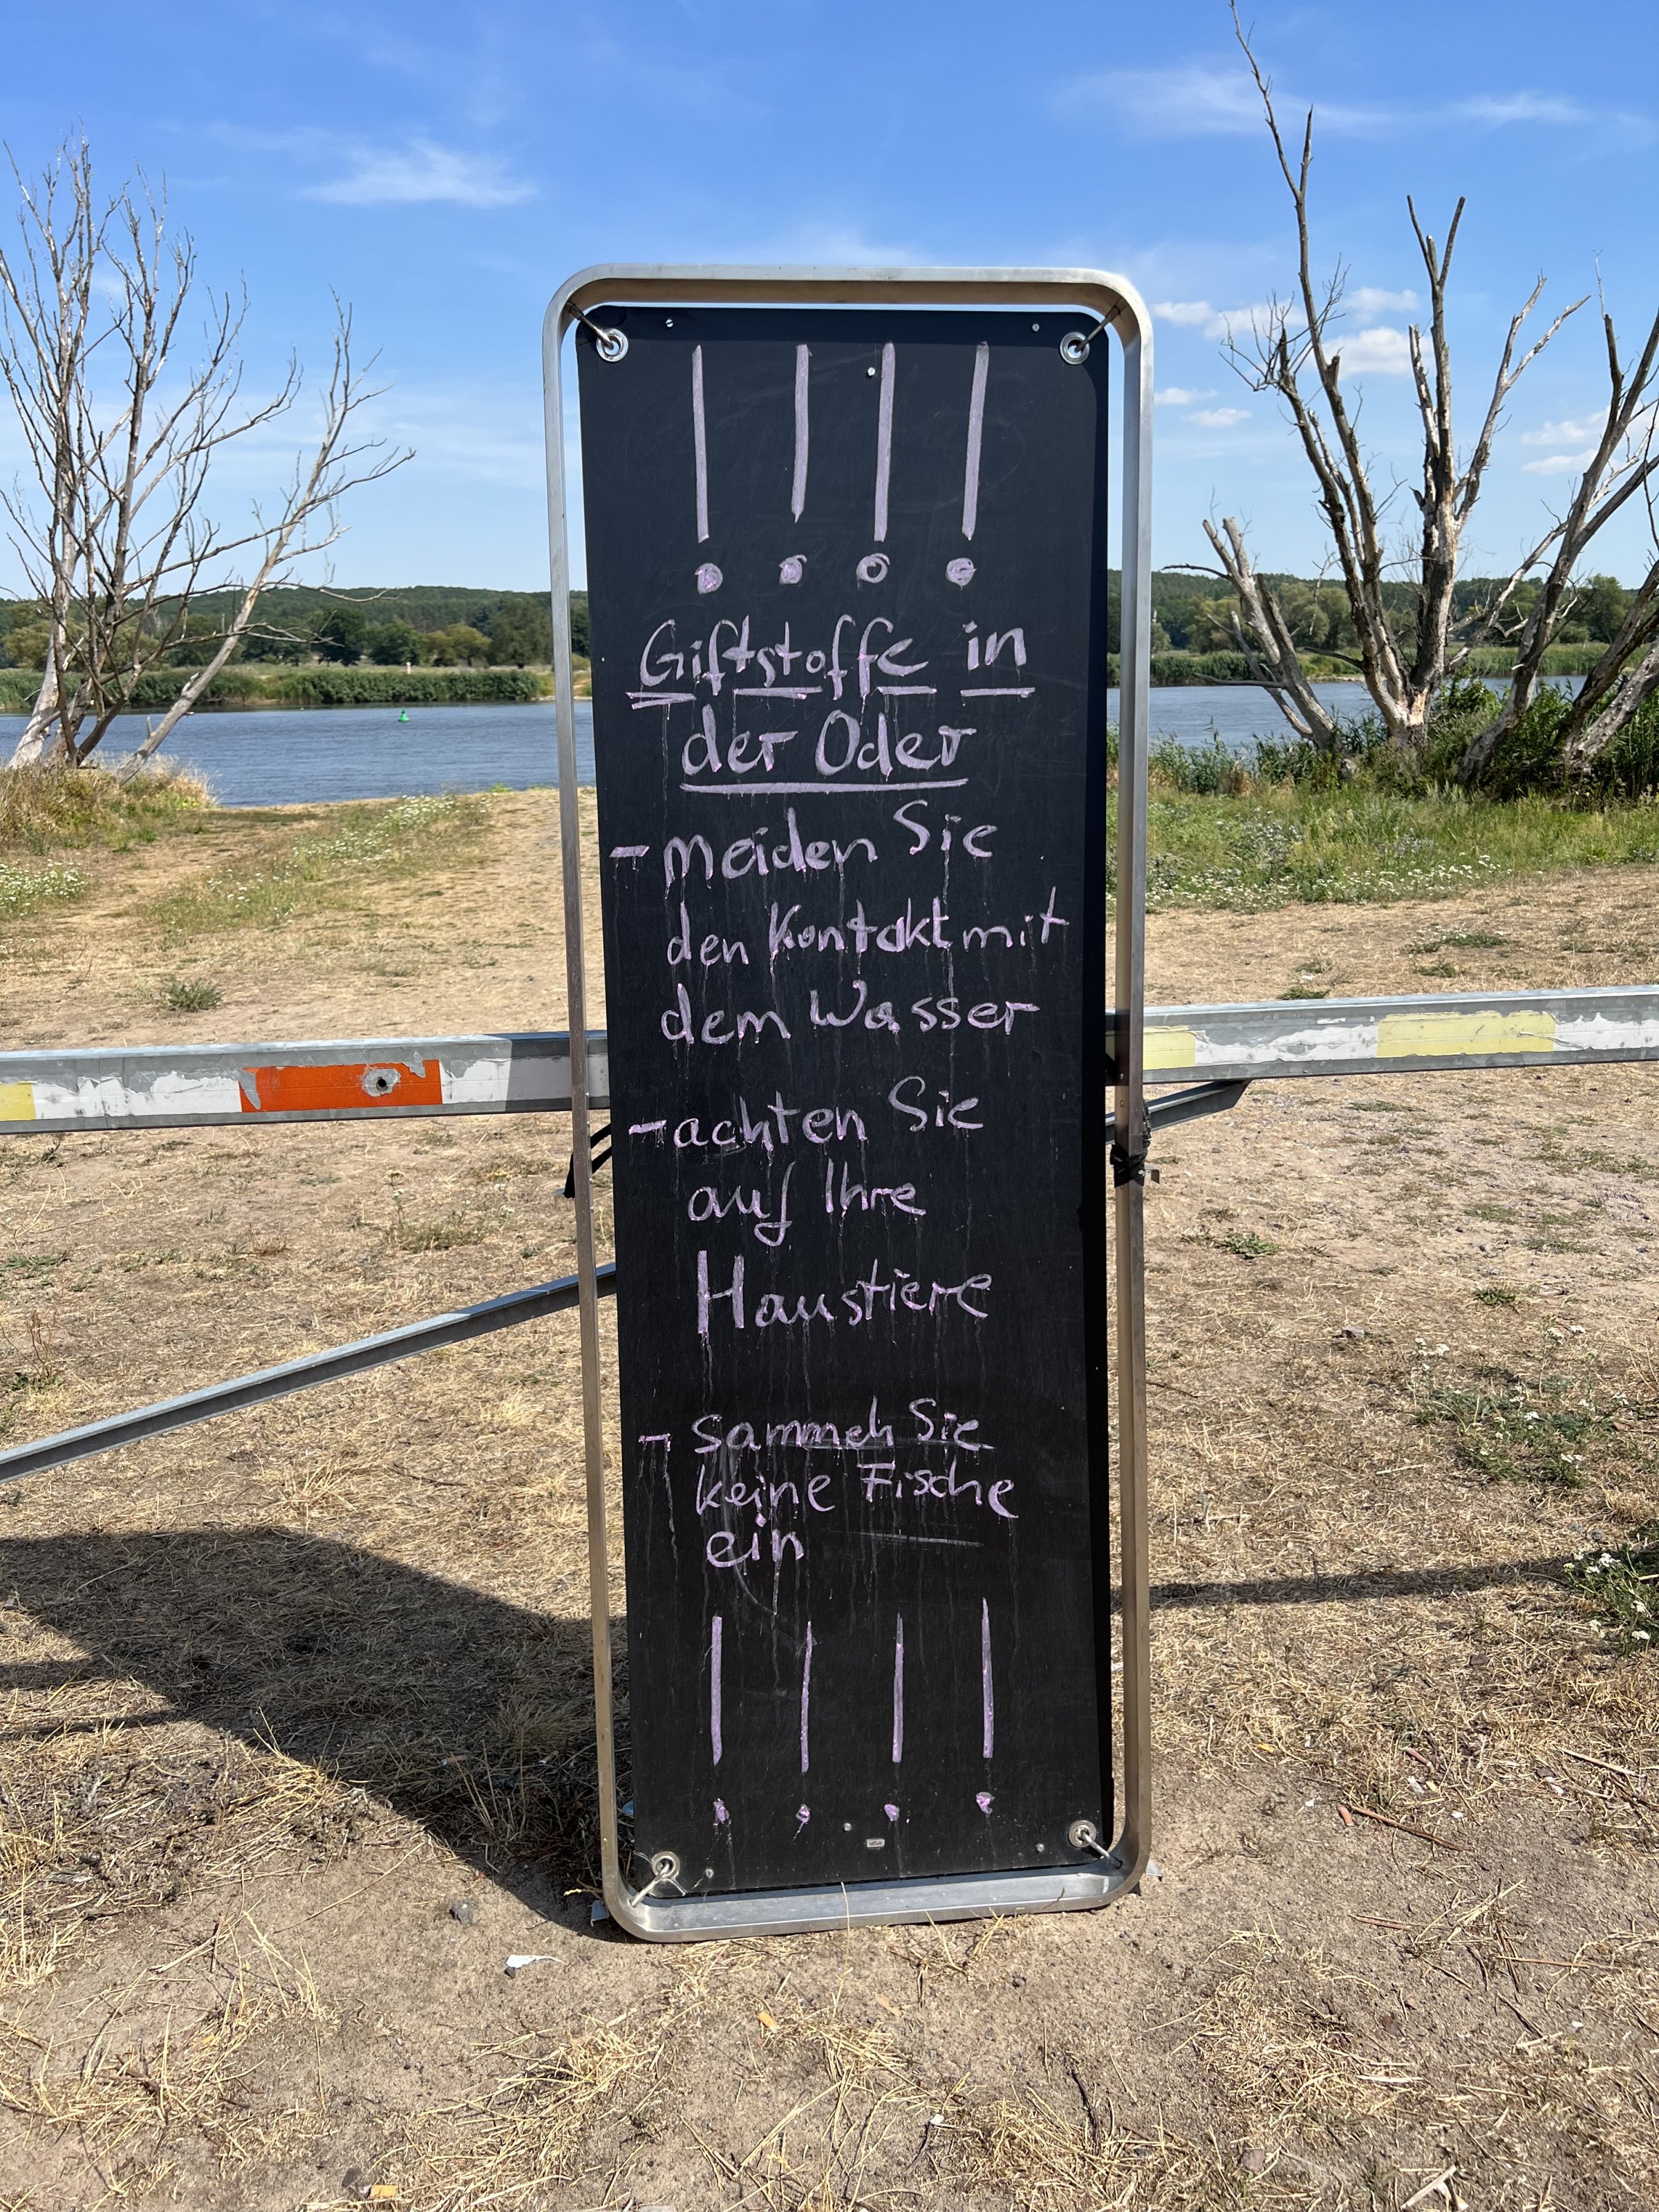 ! ! ! !
Giftstoffe in
der Oder
- meiden Sie
den Kontakt mit
dem Wasser
- achten Sie
auf Ihre
Haustiere
- sammeln Sie
keine Fische
ein
! ! ! !